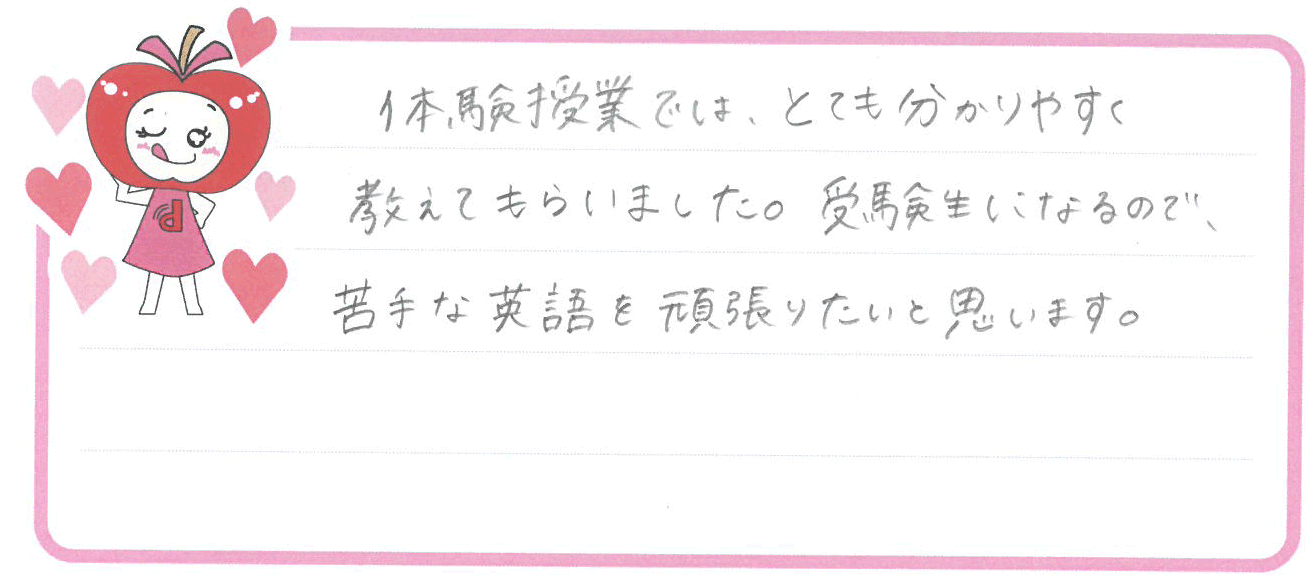 体験授業では、とても分かりやすく
教えてもらいました。受験生になるので、
苦手な英語を頑張りたいと思います。